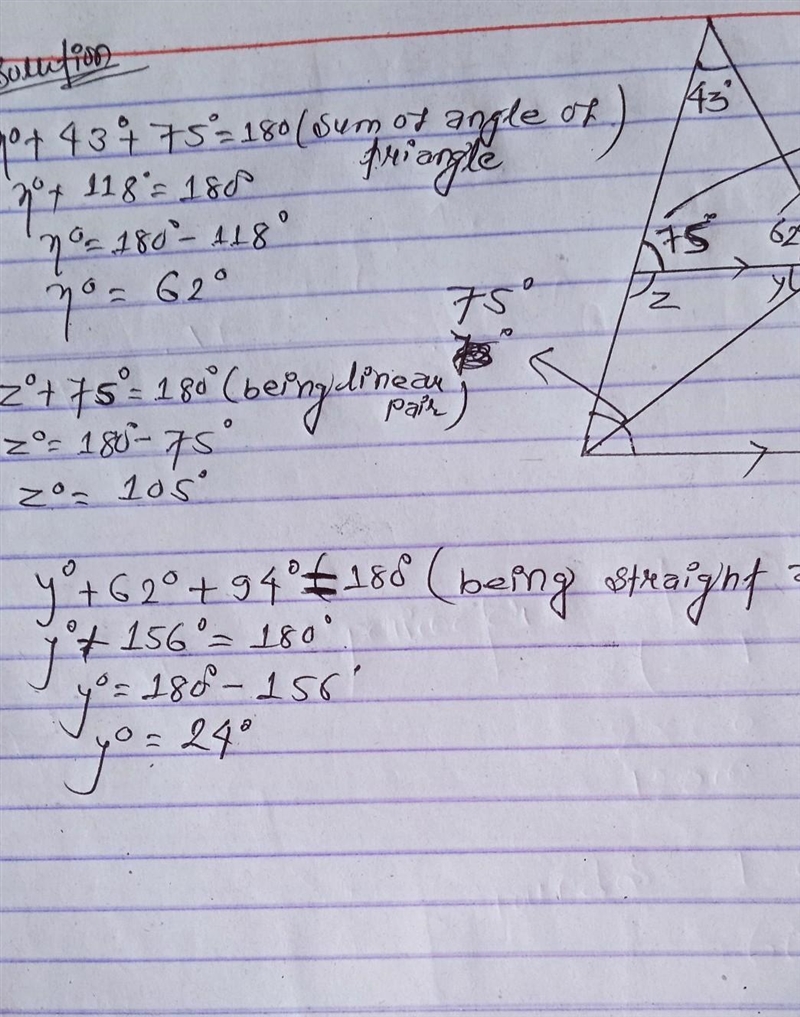 Solution
η° + 43° + 75° = 180 (Sum of angle of triangle)
η° + 118° = 180°
η° = 180° - 118°
η° = 62°
z° + 75° = 180° (being linear pair)
z° = 180° - 75°
z° = 105°
y° + 62° + 94° = 180° (being straight
y° + 156° = 180°
y° = 180° - 156°
y° = 24°
43°
75°
62
z
y
75°